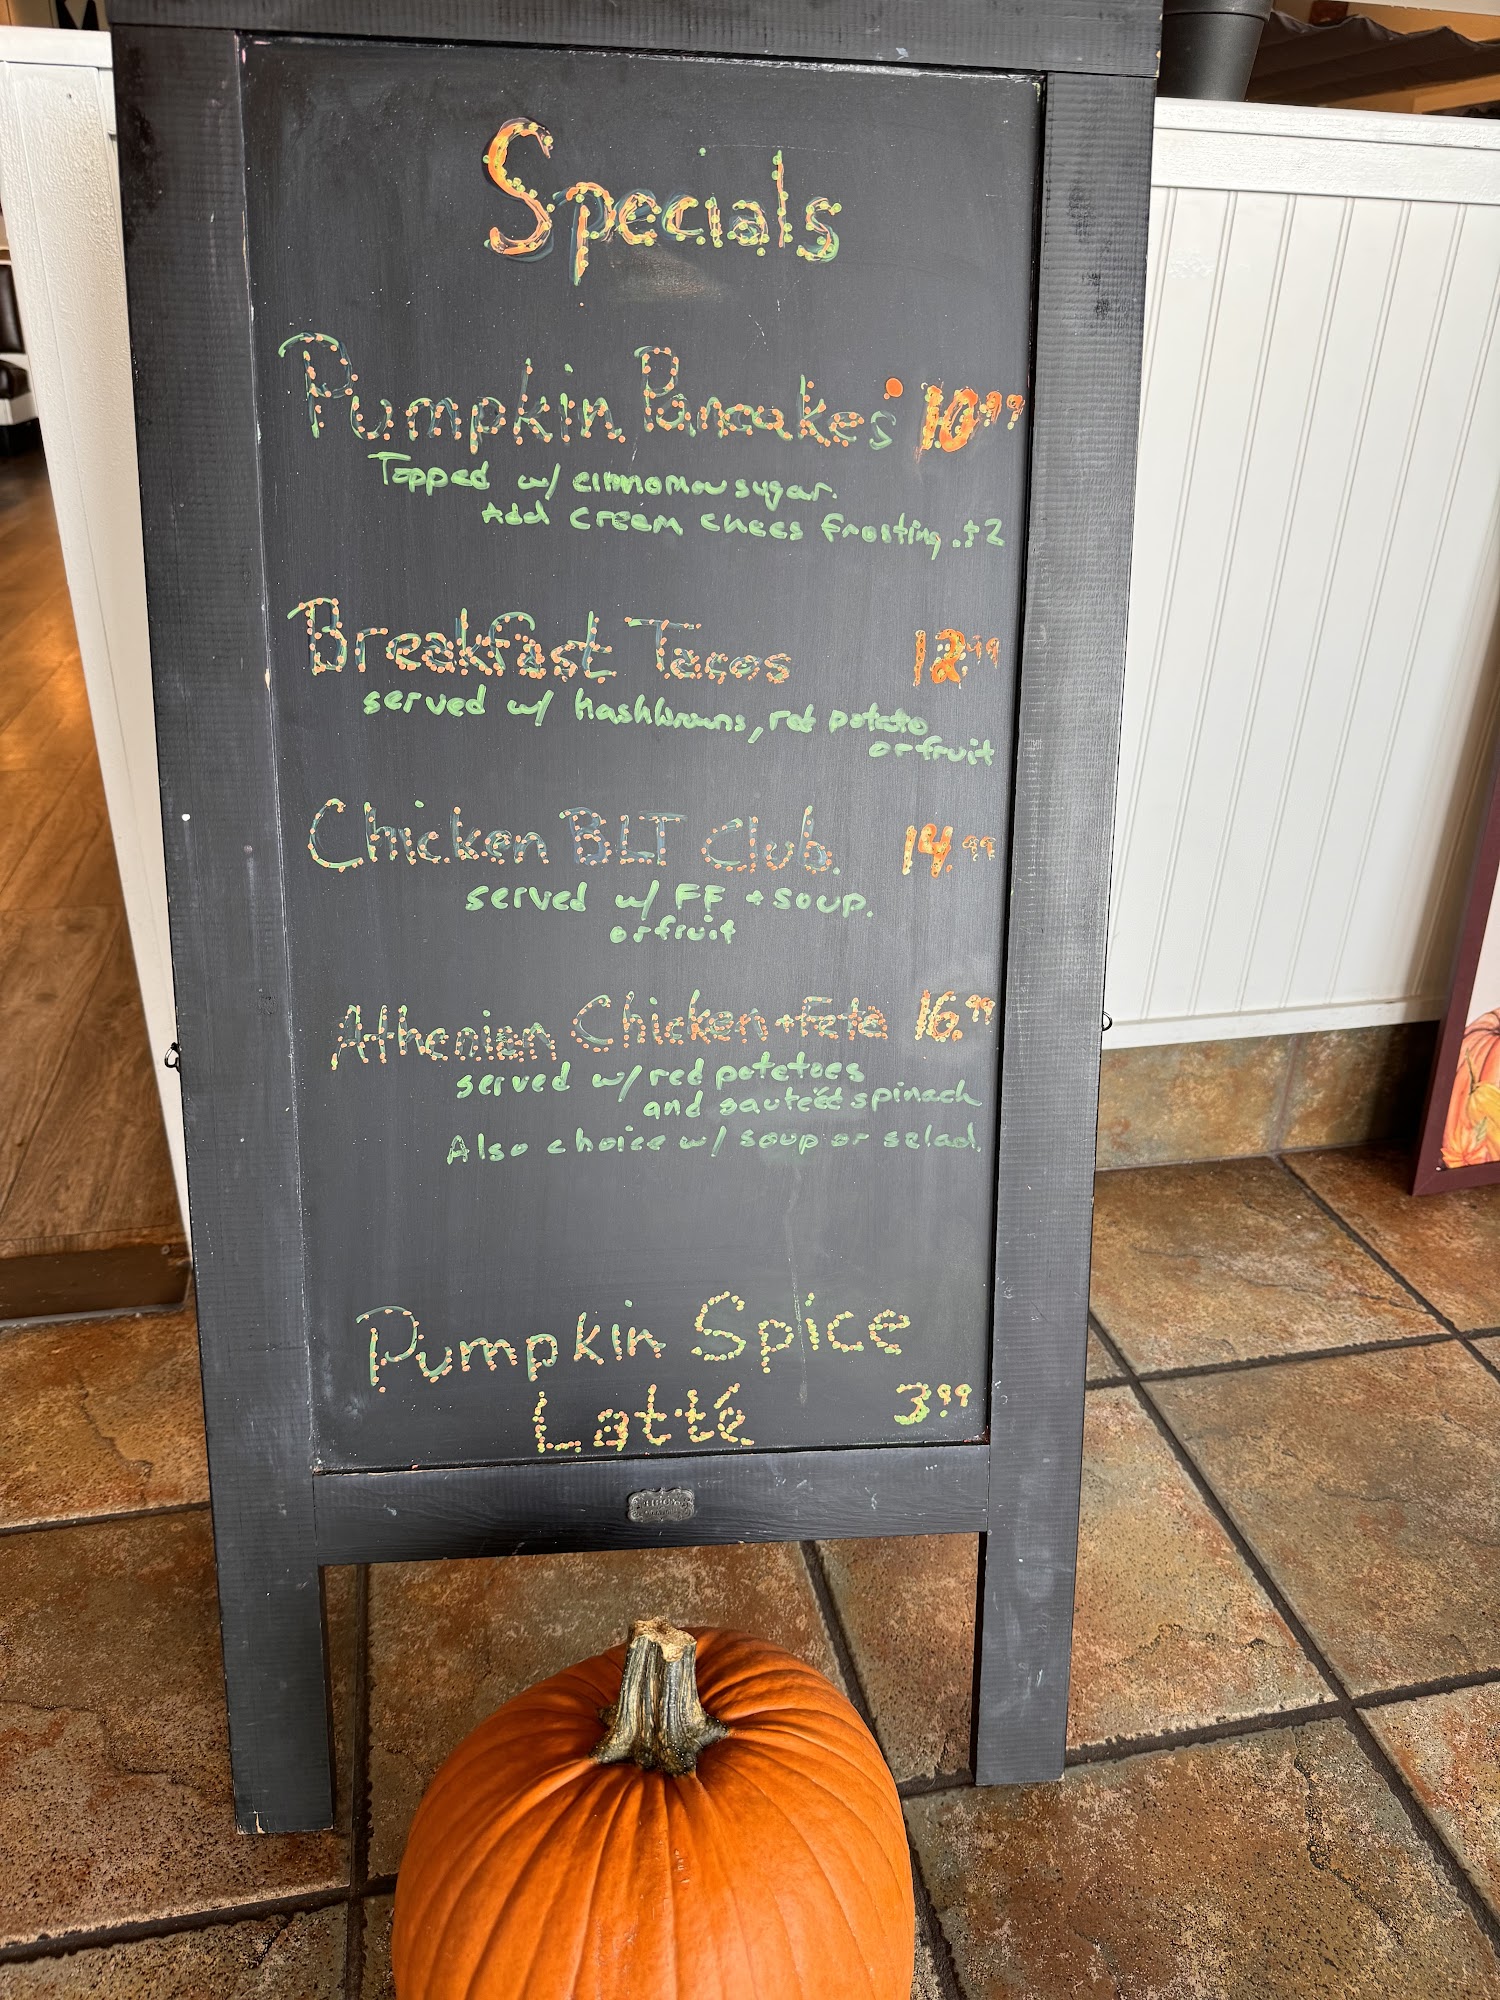 Specials
Pumpkin Pancakes 10.99
Topped w/ cinnomon sugar.
Add cream chees frosting .+2
Breakfast Tacos 12.99
served w/ hashbrowns, red potato
or fruit
Chicken BLT Club. 14.99
served w/ FF + soup.
or fruit
Athenian Chicken + Feta 16.99
served w/ red potatoes
and sauteéd spinach
Also choice w/ soup or salad.
Pumpkin Spice
Latté 3.99